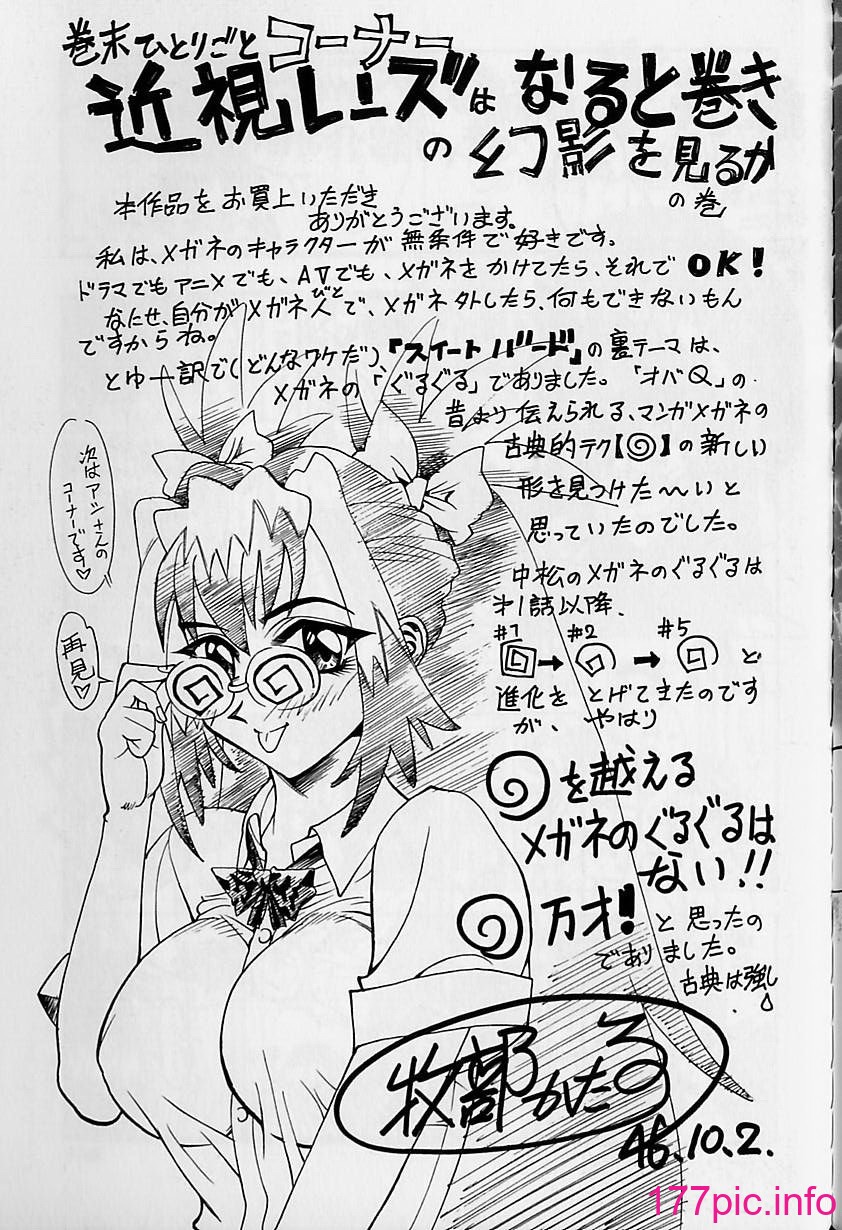 巻末ひとりごとコーナー
近視レンズは なると巻き
の幻影を見るか
の巻
本作品をお買上いただき
ありがとうございます。
私は、メガネのキャラクターが無条件で好きです。
ドラマでもアニメでも、AVでも、メガネをかけてたら、それでOK!
なにせ、自分がメガネ人びとで、メガネ外したら、何もできないもん
ですからね。
とゆー訳で(どんなワケだ)、『スイートバード』の裏テーマは、
メガネの「ぐるぐる」でありました。「オバQ」の
昔より伝えられる、マンガメガネの
古典的テク【◎】の新しい
形を見つけた〜いと
思っていたのでした。
中松のメガネのぐるぐるは
オ1話以降、
#1 → #2 → #5 と
進化をとげてきたのです
が、やはり
を越える
メガネのぐるぐるは
ない!!
万才!と思ったの
でありました。
古典は強し
次はアシさんの
コーナーです♡
再見♡
牧部かたる
'96.10.2.
177pic.info